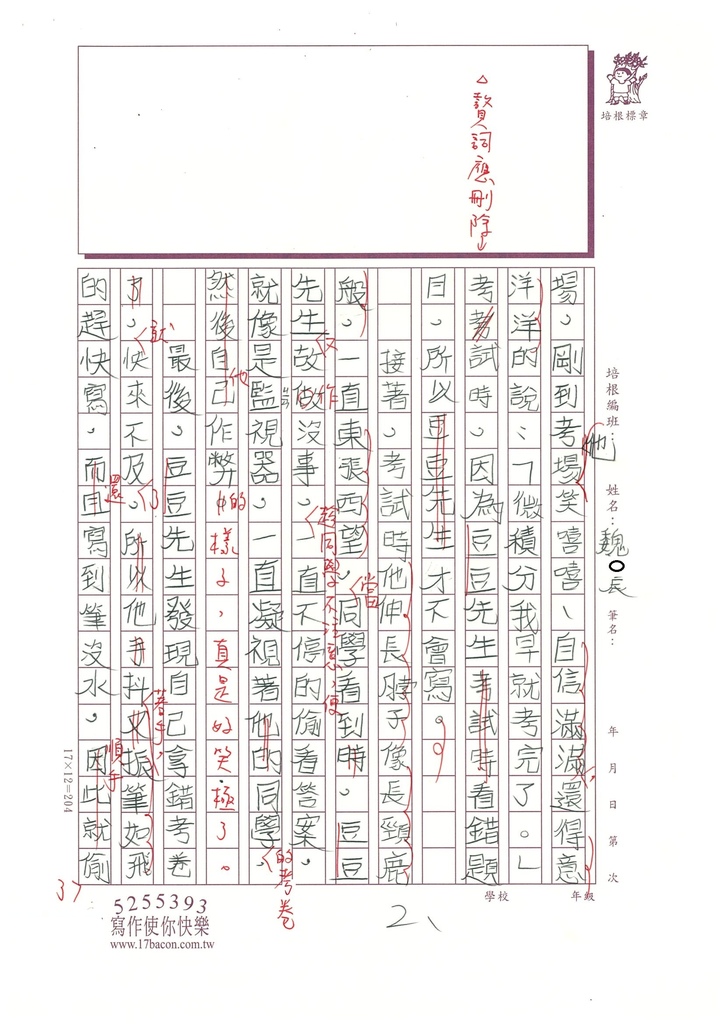 △贅詞應刪除
培根標章
培根編班：
姓名：魏○辰
筆名：
年　月　日　第　次
學校
年級
場，剛到考場笑嘻嘻、自信滿滿還得意
他
洋洋的說：「微積分我早就考完了。」
考考試時，因為豆豆先生考試時看錯題
目，所以豆豆先生才不會寫。
接著，考試時他伸長脖子像長頸鹿
般，一直東張西望，同學看到時，豆豆
當
先生故做沒事，一直不停的偷看答案，
又
作
趁同學不注意，便
就像是監視器，一直凝視著他的同學，
的考卷
然後自己作弊的樣子，真是好笑極了。
他
最後，豆豆先生發現自己拿錯考卷
了，快來不及，所以他手抖又振筆如飛
就
了
著手，
的趕快寫，而且寫到筆沒水，因此就偷
還
順手
17×12=204
37
2、
5255393
寫作使你快樂
www.17bacon.com.tw